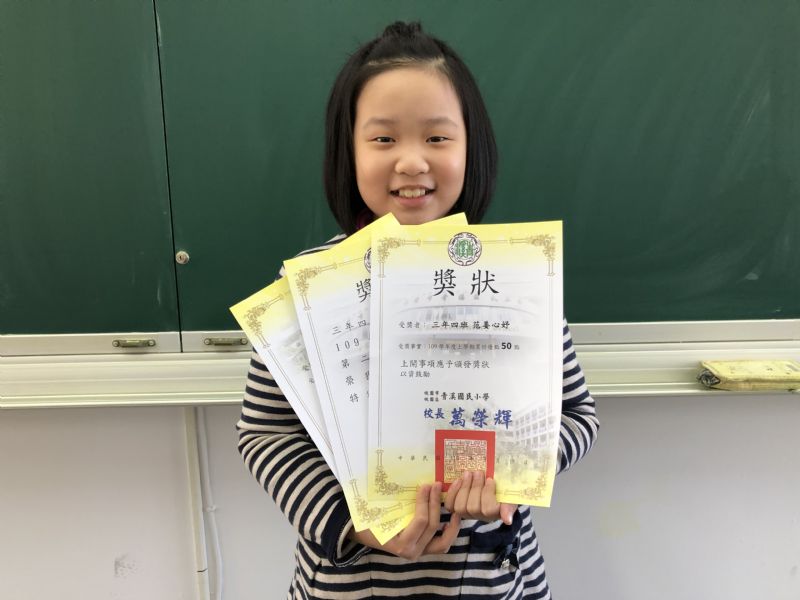 獎狀
受獎者：三年四班 范姜心妤
受獎事實：109學年度上學期累計優點50點
上開事項應予頒發獎狀
以資鼓勵
桃園市
桃園區
青溪國民小學
校長 萬榮輝
中華民國
獎
三年四
109
第
榮
特